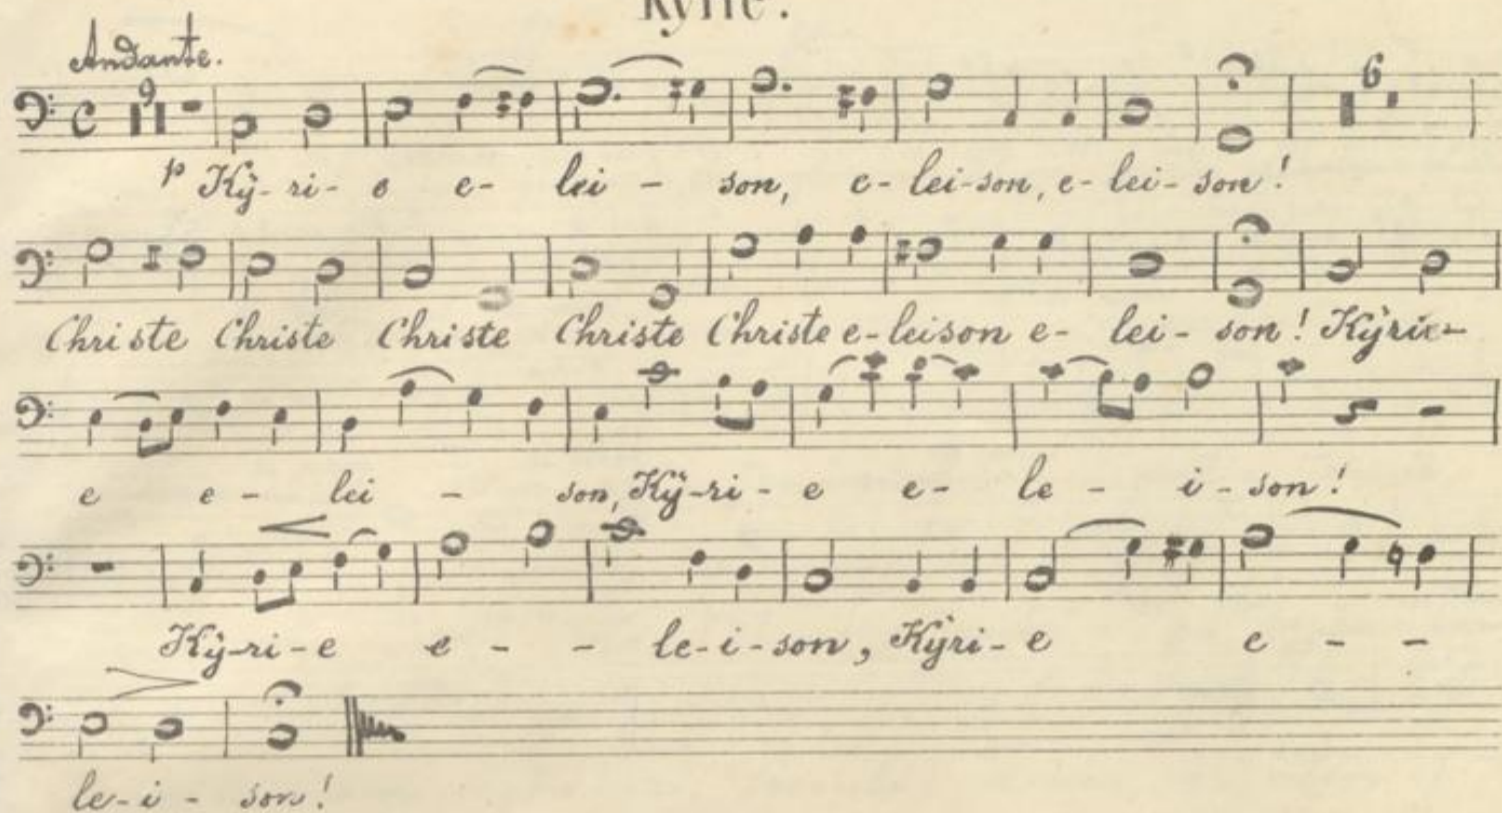 Kyrie.
Andante.
9 6
p Kÿ-ri- e e- lei - son, e-lei-son, e-lei-son!
Christe Christe Christe Christe Christe e-leison e- lei- son! Kÿrie-
e e- lei - son, Kÿ-ri- e e- le - i-son!
Kÿ-ri-e e - - le-i-son, Kÿri-e e - -
le-i- son!